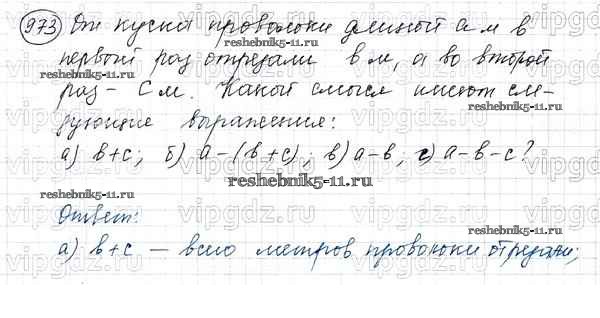 973 От куска проволоки длиной а м в
первый раз отрезали в м, а во второй
раз - с м. Какой смысл имеют сле-
дующие выражения:
а) в+с; б) а-(в+с); в) а-в; г) а-в-с?
Ответ:
а) в+с — всего метров проволоки отрезали;
reshebnik5-11.ru
reshebnik5-11.ru
reshebnik5-11.ru
reshebnik5-11.ru
vipgdz.ru
vipgdz.ru
vipgdz.ru
vipgdz.ru